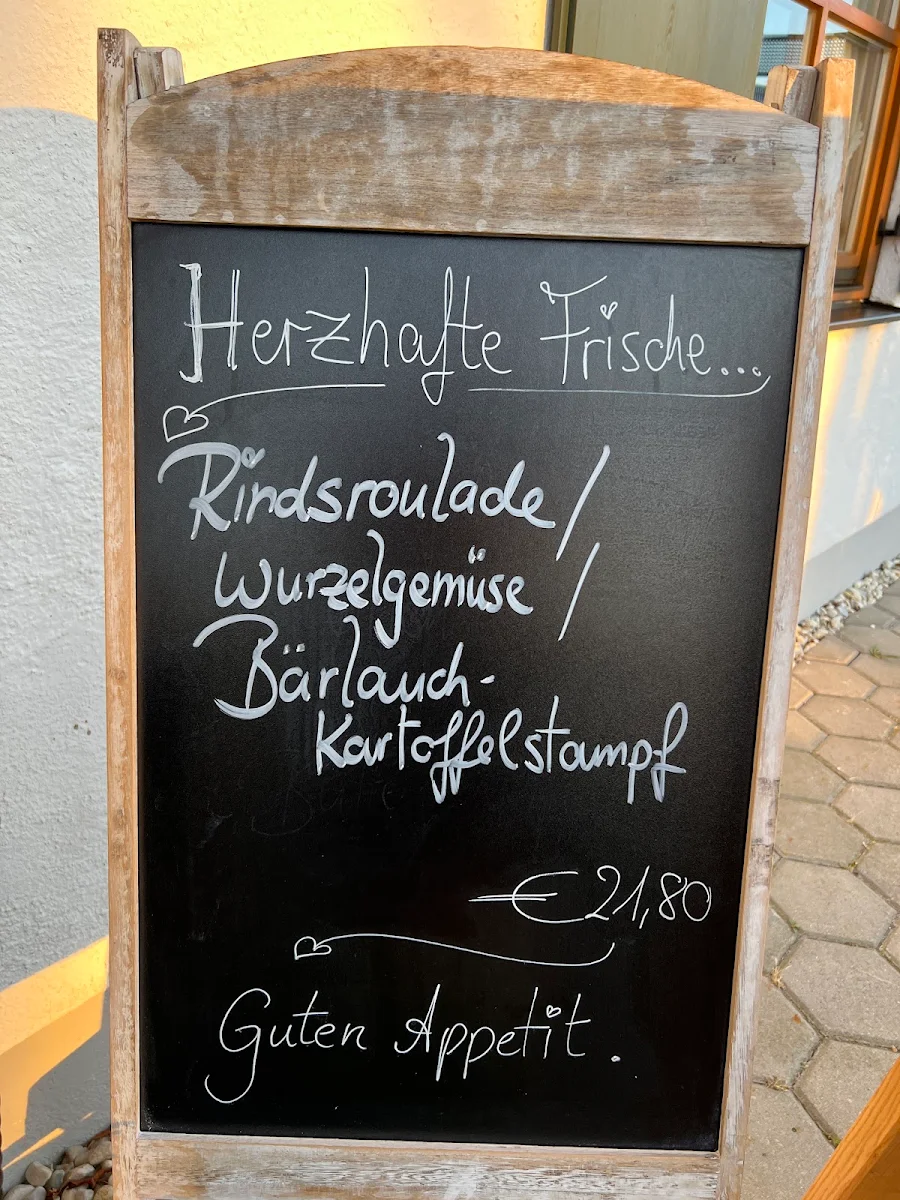 Herzhafte Frische...
Rindsroulade/
Wurzelgemüse /
Bärlauch-
Kartoffelstampf
€ 21,80
Guten Appetit.